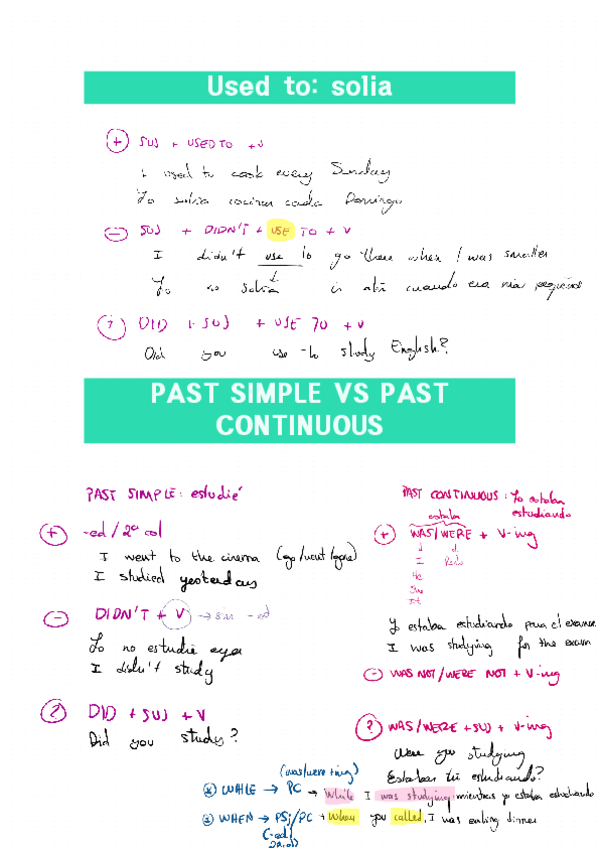 Used to: solia
+ SUJ + USED TO + V
I used to cook every Sunday
Yo solia cocinar cada Domingo
- SUJ + DIDN'T + USE TO + V
I didn't use to go there when I was smaller
Yo no solia ir allí cuando era más pequeños
? DID + SUJ + USE TO + V
Did you use to study English?
PAST SIMPLE VS PAST
CONTINUOUS
PAST SIMPLE: estudié
+ -ed / 2ª col
I went to the cinema (go/went/gone)
I studied yesterday
- DIDN'T + V → sin -ed
Yo no estudie ayer
I didn't study
? DID + SUJ + V
Did you study?
PAST CONTINUOUS: Yo estaba
estudiando
estaba
+ WAS/WERE + V-ing
I
He
She
It
Y estaba estudiando para el examen
I was studying for the exam
- WAS NOT/WERE NOT + V-ing
? WAS/WERE + SUJ + V-ing
Were you studying
Estabas tú estudiando?
(was/were + ing)
* WHILE → PC → While I was studying mientras yo estaba estudiando
* WHEN → PS/PC → When you called, I was eating dinner
(-ed)
2ª col